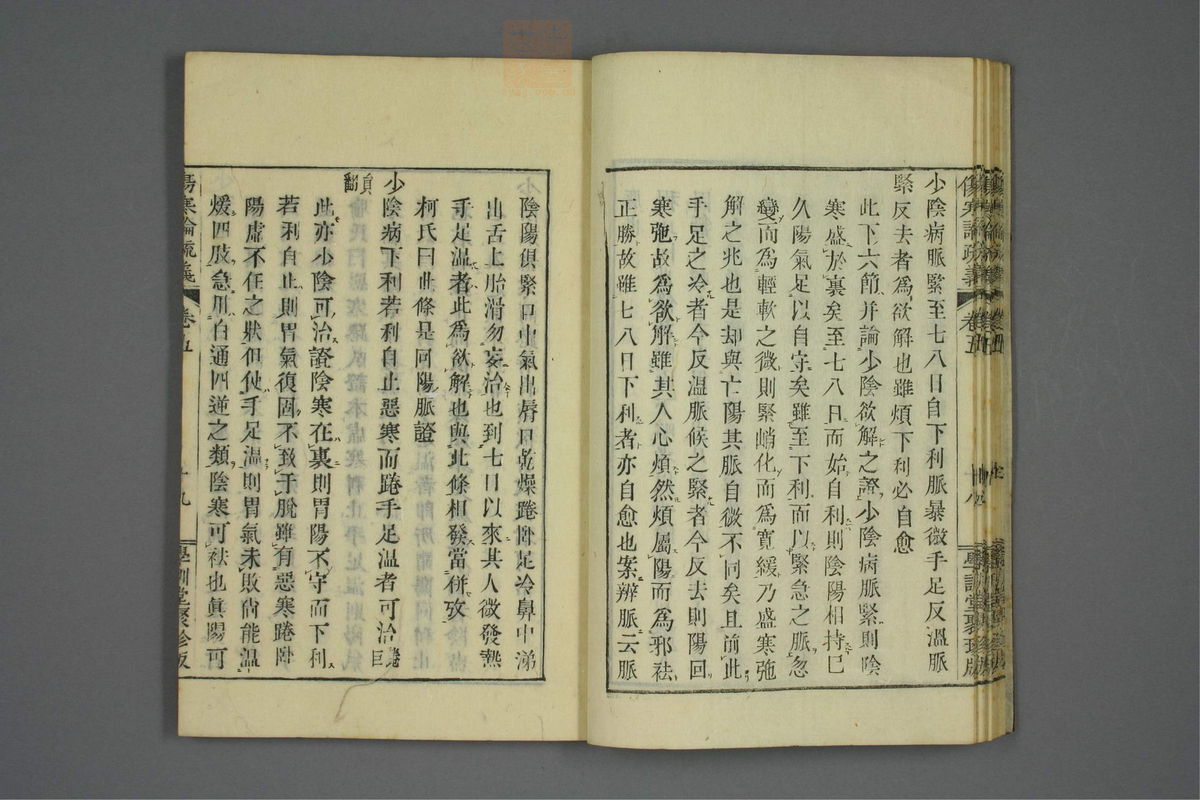 傷寒論疏義 卷五 學訓堂聚珍版
少陰病脈緊至七八日自下利脈暴微手足反溫脈
緊反去者爲欲解也雖煩下利必自愈
此下六節并論少陰欲解之證少陰病脈緊則陰
寒盛於裏矣至七八日而始自利則陰陽相持已
久陽氣足以自守矣雖至下利而以緊急之脈忽
變而爲輕軟之微則緊峭化而爲寬緩乃盛寒弛
解之兆也是却與亡陽其脈自微不同矣且前此
手足之冷者今反溫脈候之緊者今反去則陽回
寒弛故爲欲解雖其人心煩然煩屬陽而爲邪祛
正勝故雖七八日下利者亦自愈也案辨脈云脈
陰陽俱緊口中氣出脣口乾燥踡臥足冷鼻中涕
出舌上胎滑勿妄治也到七日以來其人微發熱
手足溫者此爲欲解也與此條相發當併攷
柯氏曰此條是回陽脈證
少陰病下利若利自止惡寒而踡手足溫者可治踡巨
員翻
此亦少陰可治證陰寒在裏則胃陽不守而下利
若利自止則胃氣復固不致于脫雖有惡寒踡臥
陽虛不任之狀但使手足溫則胃氣未敗尚能溫
煖四肢急用白通四逆之類陰寒可祛也眞陽可
傷寒論疏義 卷五 十九 學訓堂聚珍版